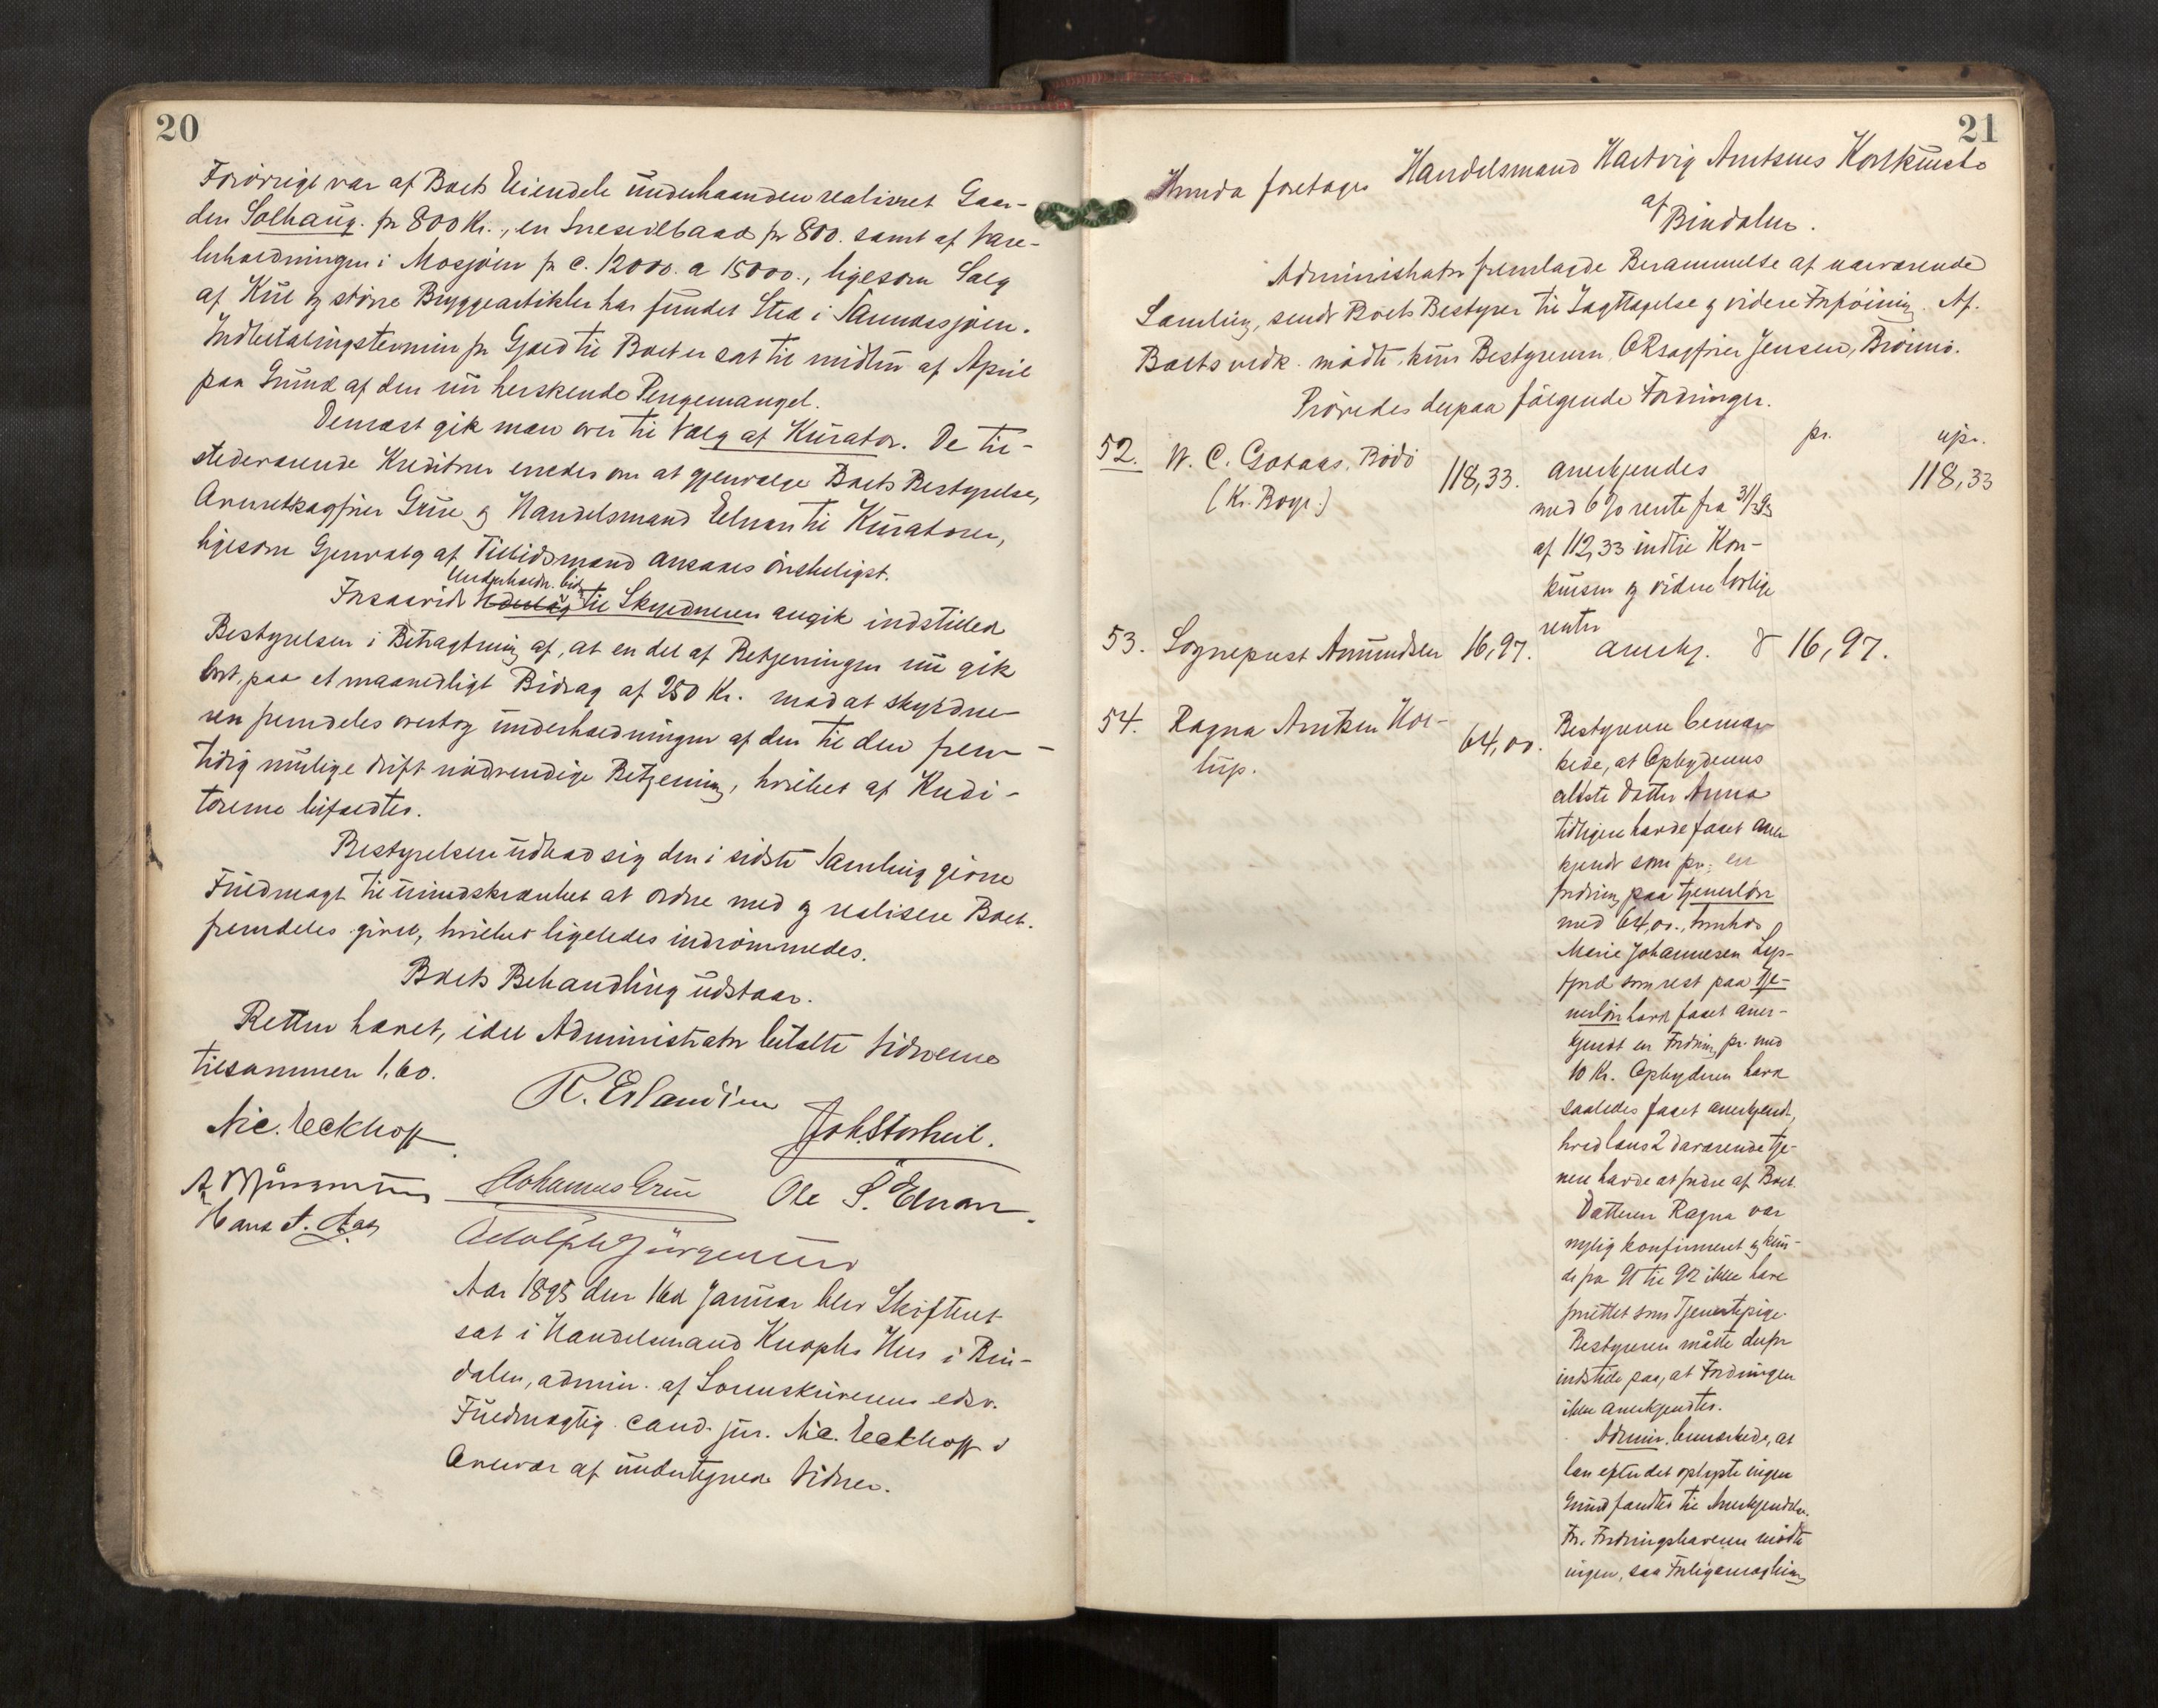 20
Forøvrigt var af Boets Eiendele underhaanden realiseret Gaar-
den Solhaug. for 800 Kr., en Snesedlbaad for 800. samt af Vare-
beholdningen i Mosjøen for c. 12000. a 15000., ligesom Salg
af Kul og større Bryggeartikler har fundet Sted i Sannæssjøen.
Indbetalingstermin for Gjæld til Boet er sat til midten af April
paa Grund af den nu herskende Pengemangel.
Dernæst gik man over til Valg af Kurator. De til-
stedeværende Kreditorer enedes om at gjenvælge Boets Bestyrelse,
Overretssagfører Grüe og Handelsmand Elnan til Kuratorer,
ligesom Gjenvalg af Tillidsmænd ansaaes ønskeligst.
Underholdn. bidr.
Forsaavidt til Skyldneren angik indstilled
Bestyrelsen i Betragtning af, at en del af Betjeningen nu gik
bort, paa et maanedligt Bidrag af 250 Kr. mod at skyldne-
ren fremdeles overtog underholdningen af den til den frem-
tidig mulige drift nødvendige Betjening, hvilket af Kredi-
torerne bifaldtes.
Bestyrelsen udbad sig den i sidste Samling givne
Fuldmagt til uindskrænket at ordne med og realisere Boet
fremdeles given, hvilket ligeledes indrømmedes.
Boets Behandling udstaar.
Retten hævet, idet Administrator betalte Vidnerne
tilsammen 1,60.
R. Erlandsen
Nic. Eeckhoff
Joh. Storheil.
Johannes Grüe
Ole S. Elnan
Hans A. Aas
Adolph Jürgensen
Aar 1895 den 16d Januar blev Skifteret
sat i Handelsmand Knophs Hus i Bin-
dalen, admin. af Sorenskriverens edsv.
Fuldmægtig cand. jur. Nic. Eeckhoff i
Overvær af undertegnede Vidner.
21
Hvorda foretoges Handelsmand Hartvig Arntsens Konkursbo
af
Bindalen.
Administrator fremlagde Berammelse af nærværende
Samling, sendt Boets Bestyrer til Iagttagelse og videre Forføining. Af
Boets vedk. mødte kun Bestyreren, ORsagfører Jensen, Brønnø.
Prøvedes derpaa følgende Fordringer.
pr. upr.
52. W. C. Gotaas, Bodø 118,33. anerkjendes 118,33
(Kr. Boye.) med 6% rente fra 31/3 93
af 112,33 indtil Kon-
kursen og videre lovlige
renter
53. Sogneprest Amundsen 16,97. anerkj. 16,97.
54. Ragna Arntsen Hol- 64,00. Bestyreren bemær-
lup. kede, at Opbyderens
ældste datter Anna
tidligere havde faaet aner
kjendt som pr. en
fordring paa tjenerløn
med 64,00., hvorhos
Marie Johannesen Lys-
fjord som rest paa Tje-
nerløn havde faaet aner-
kjendt en Fordring pr. med
10 Kr. Opbyderen havde
saaledes faaet anerkjendt,
hvad hans 2 daværende tje-
nere havde at fordre af Boet.
Datteren Ragna var
nylig konfirmeret og kun-
de fra 91 til 92 ikke have
forrettet som Tjenestepige.
Bestyreren måtte derfor
indstille paa, at Fordringen
ikke anerkjendtes.
Admin. bemærkede, at
han efter det oplyste ingen
Grund fandtes til Anerkjendelse.
For Fordringshaveren mødte
ingen, saa Forligsmægling